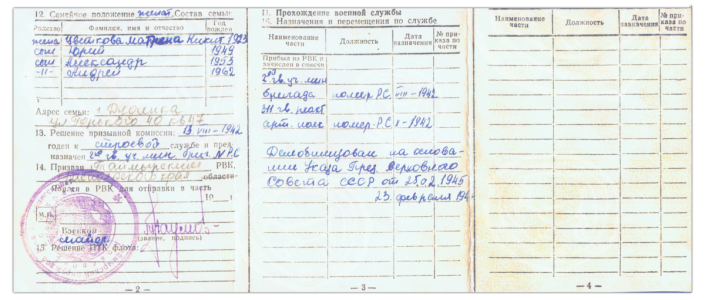 12. Семейное положение женат Состав семьи:
Родство Фамилия, имя и отчество Год рожден
жена Цветкова Матрена Никит 1923
сын Юрий 1949
сын Александр 1953
-"- Андрей 1962
Адрес семьи: г.
13. Решение призывной комиссии: 13 VIII-1942
годен к строевой службе и пред-
назначен 2й гв. уч. мин. бриг. № РС
14. Призван РВК,
области
Явился в РВК для отправки в часть
19
М.П.
Военком
(звание, подпись)
15. Решение ПТК флота:
— 2 —
II. Прохождение военной службы
16. Назначения и перемещения по службе
Наименование части Должность Дата назначения № приказа по части
Прибыл из РВК и зачислен в списки
2й гв. уч. мин
бригада номер Р.С. VIII-1942
311 гв.
арт. полк номер Р.С X-1942
Демобилизован на основа-
нии Указа През. Верховного
Совета СССР от 25.02.1945
23 февраля 194
— 3 —
Наименование части Должность Дата назначения № приказа по части
— 4 —